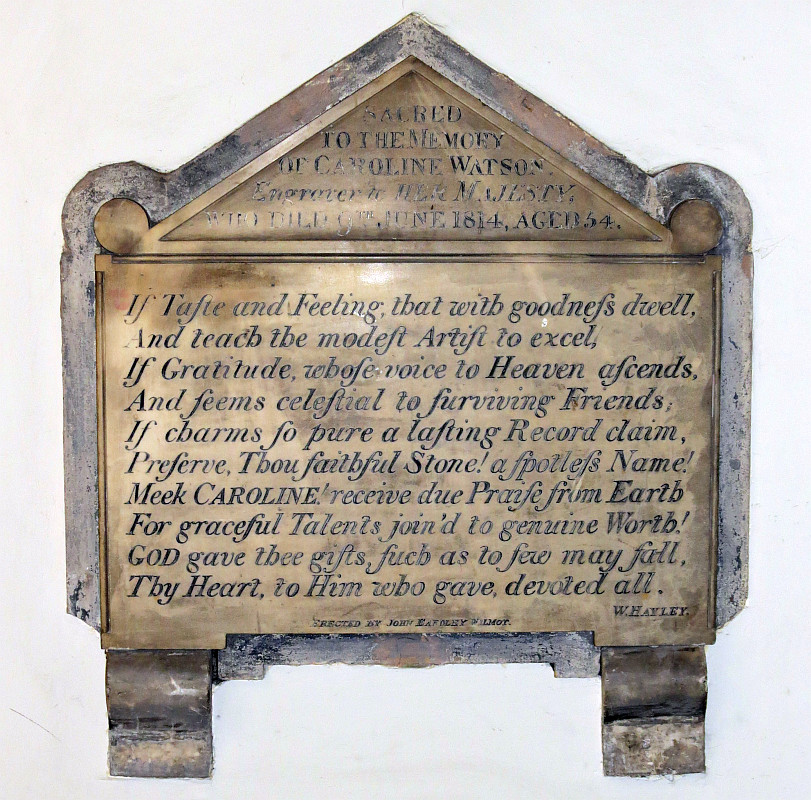 SACRED
TO THE MEMORY
OF CAROLINE WATSON.
Engraver to HER MAJESTY,
WHO DIED 9TH JUNE 1814, AGED 54.
If Taſte and Feeling, that with goodneſs dwell,
And teach the modeſt Artiſt to excel,
If Gratitude, whoſe voice to Heaven aſcends,
And ſeems celeſtial to ſurviving Friends,
If charms ſo pure a laſting Record claim,
Preſerve, Thou faithful Stone! a ſpotleſs Name!
Meek CAROLINE! receive due Praiſe from Earth
For graceful Talents join'd to genuine Worth!
GOD gave thee gifts, ſuch as to few may fall,
Thy Heart, to Him who gave, devoted all.
W. HAYLEY.
ERECTED BY JOHN EARDLEY WILMOT.